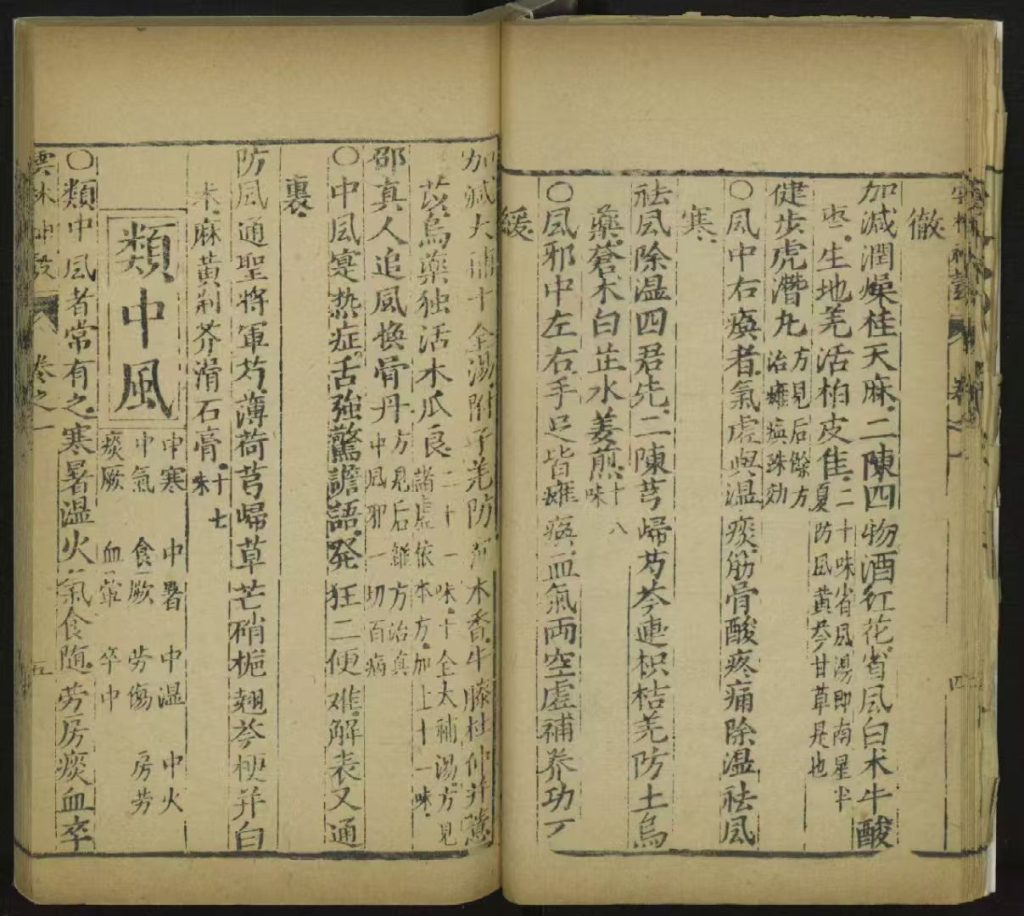 徹
加減潤燥桂天麻二陳四物酒紅花省風白朮牛酸
枣生地羌活柏皮隹二十味省風湯即南星半
夏防風黄芩甘草是也
健步虎潛丸方見后餘方
治癱瘓殊効
〇風中右瘓者氣虛與温痰筋骨酸疼痛除温祛風
寒
祛風除温四君先二陳芎歸芍芩連枳桔羌防土烏
藥蒼朮白芷水姜煎十八
味
〇風邪中左右手足皆癱瘓血氣両空虛補养功丁
緩
加減大補十全湯附子羌防 木香牛膝杜仲并薏
苡烏藥独活木瓜良二十一味十全大補湯方見
諸虛依本方加上十一味
邵真人追風換骨丹方見后雖方治真
中風邪一切百病
〇中風寔热症舌強驚譫語発狂二便难解表又通
裏
防風通聖將軍芍薄荷芎歸草芒硝梔翘芩梗并白
朮麻黄荆芥滑石膏十七
味
類中風
中寒 中暑 中温 中火
中氣 食厥 劳傷 房劳
痰厥 血暈 卒中
〇類中風者常有之寒暑温火氣食随劳房痰血卒
雲林神彀 卷之一 五